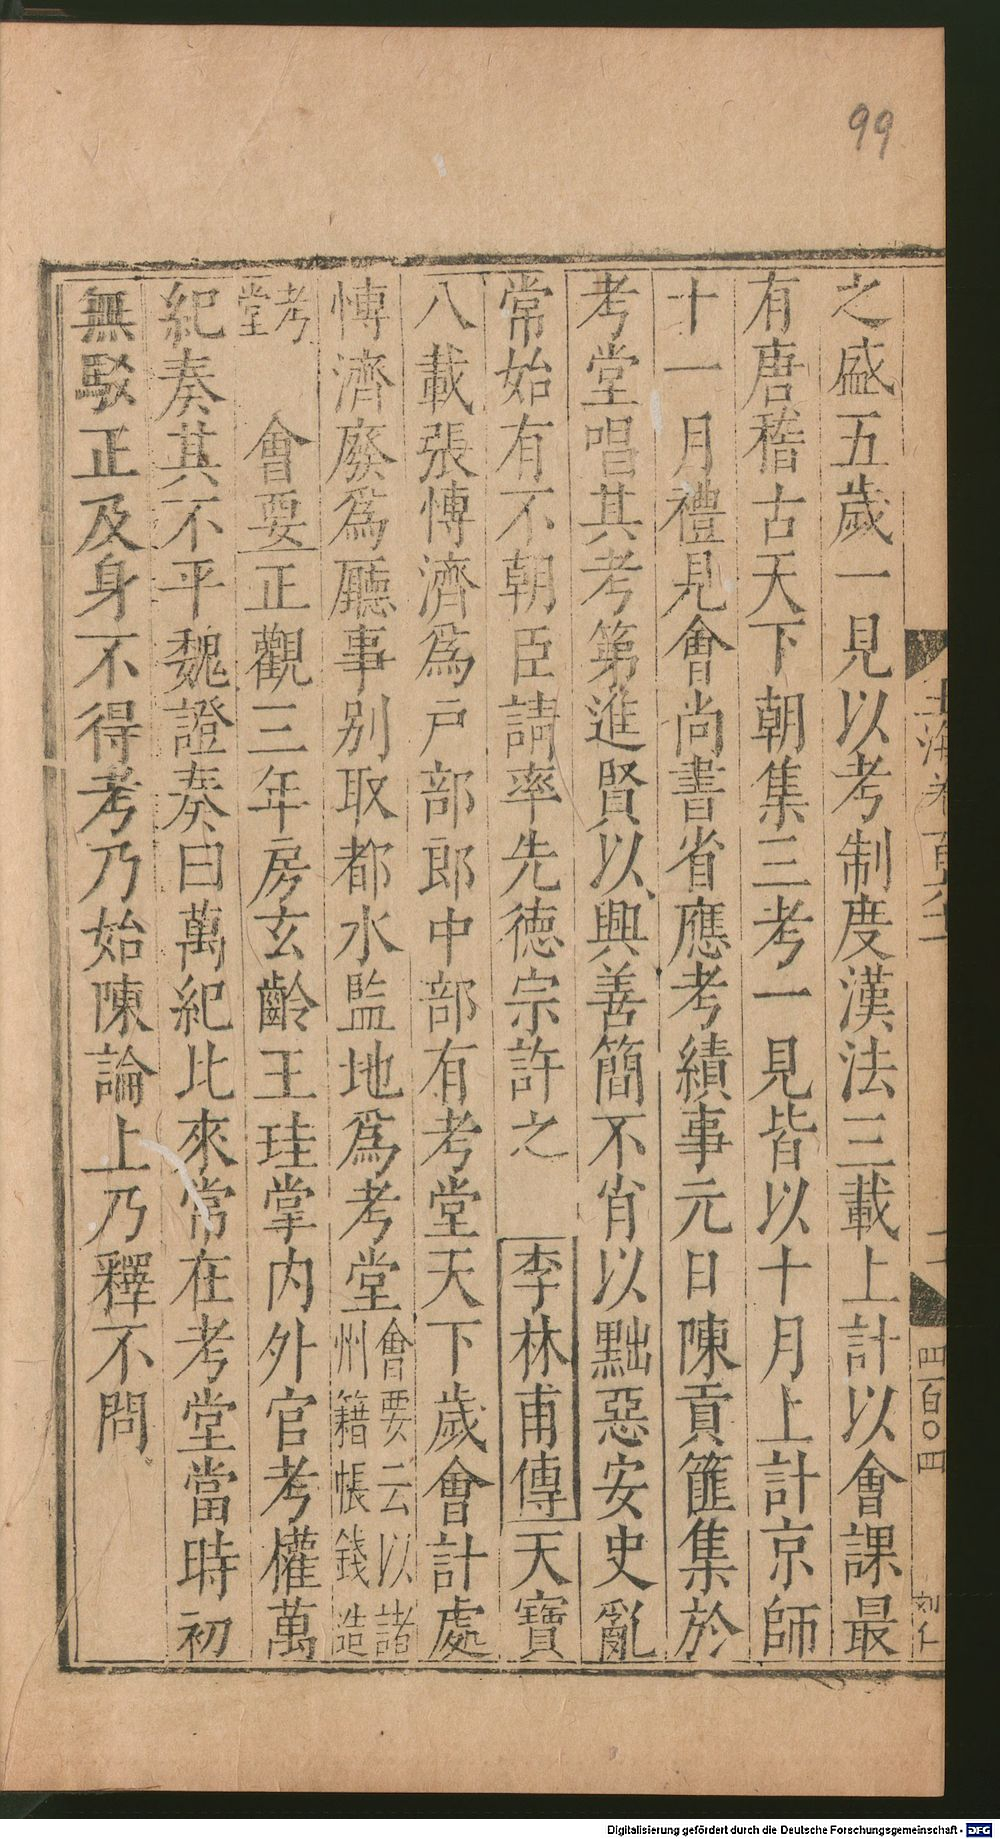 99
之盛五歲一見以考制度漢法三載上計以會課最
有唐稽古天下朝集三考一見皆以十月上計京師
十一月禮見會尚書省應考績事元日陳貢篚集於
考堂唱其考第進賢以興善簡不肖以黜惡安史亂
常始有不朝臣請率先德宗許之 李林甫傳天寶
八載張愽濟爲戸部郎中部有考堂天下歲會計處
愽濟廢爲廳事別取都水監地爲考堂會要云以諸州籍帳錢造
考堂 會要正觀三年房玄齡王珪掌内外官考權萬
紀奏其不平魏證奏曰萬紀比來常在考堂當時初
無駁正及身不得考乃始陳論上乃釋不問
四百〇四
Digitalisierung gefördert durch die Deutsche Forschungsgemeinschaft - DFG